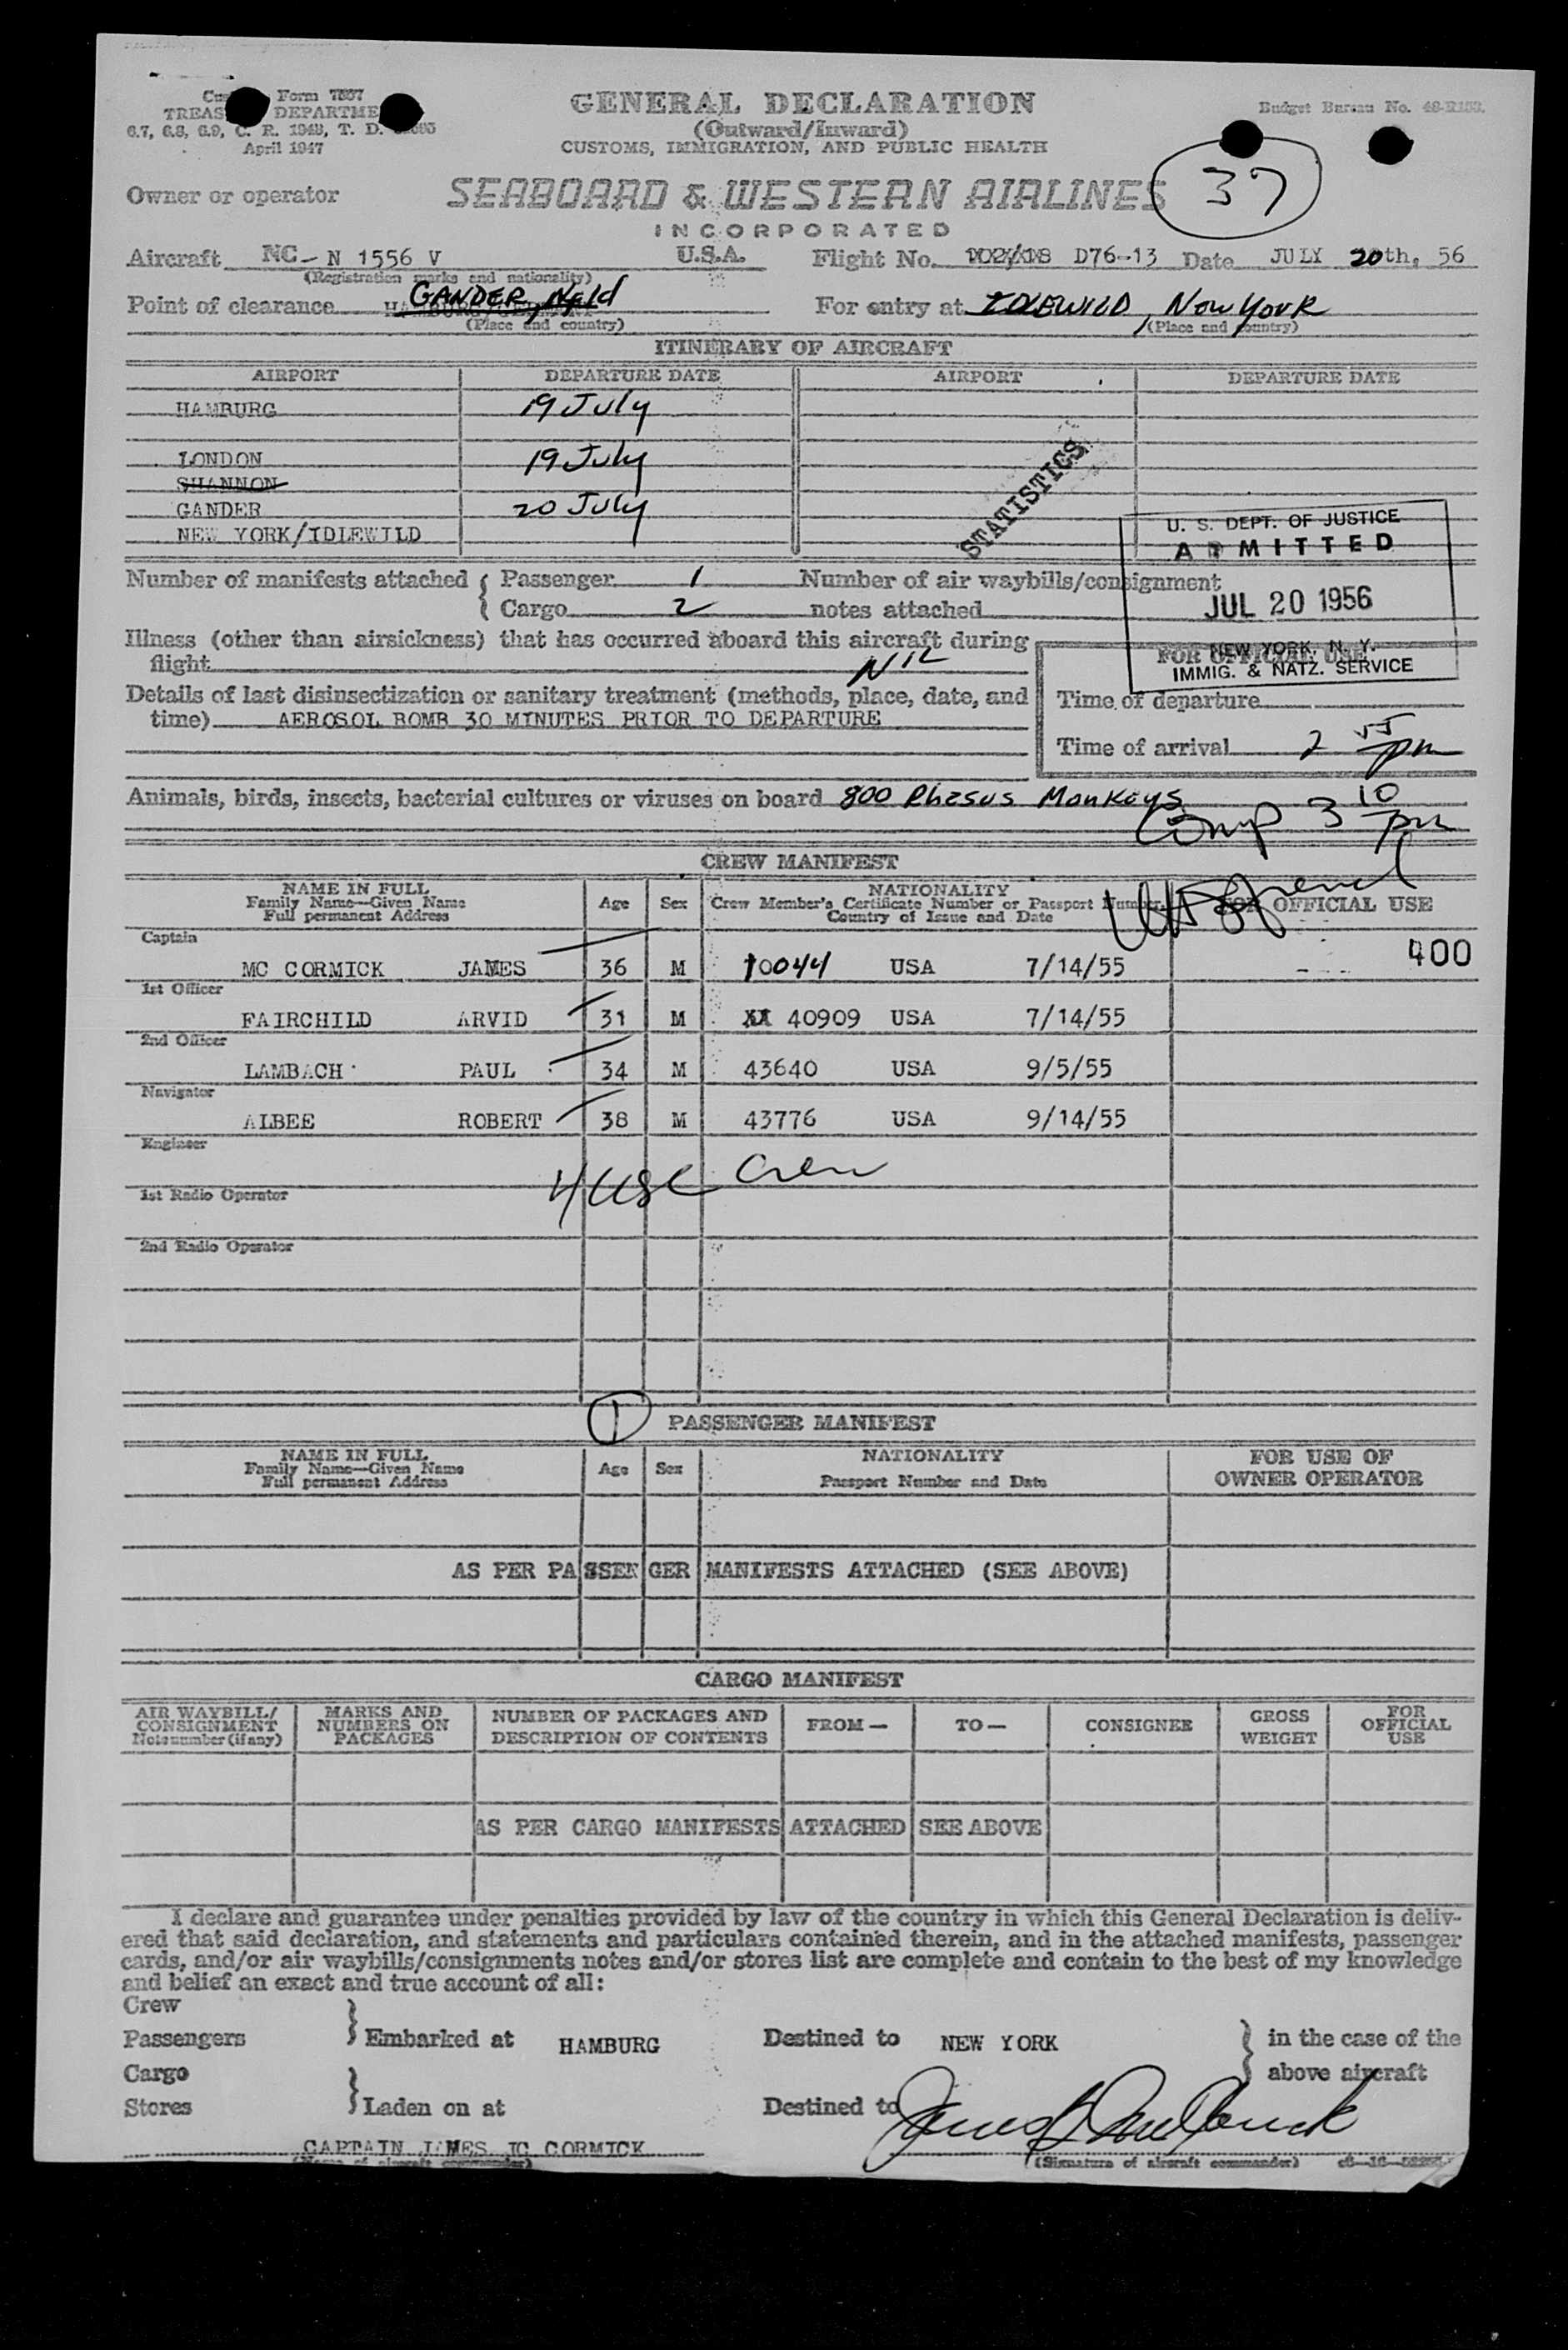 Form 7507
TREAS DEPARTME
6.7, 6.8, 6.9, C. R. 1943, T. D.
April 1947
GENERAL DECLARATION
(Outward/Inward)
CUSTOMS, IMMIGRATION, AND PUBLIC HEALTH
Budget Bureau No.
37
Owner or operator SEABOARD & WESTERN AIRLINES
INCORPORATED
Aircraft NC- N 1556 V U.S.A. Flight No. D76-13 Date JULY 20th, 56
(Registration marks and nationality)
Point of clearance GANDER, Nfld For entry at IDLEWILD, New York
(Place and country) (Place and country)
ITINERARY OF AIRCRAFT
AIRPORT DEPARTURE DATE AIRPORT DEPARTURE DATE
HAMBURG 19 July
LONDON 19 July
SHANNON
GANDER 20 July
NEW YORK/IDLEWILD
STATISTICS
U. S. DEPT. OF JUSTICE
ADMITTED
JUL 20 1956
NEW YORK, N. Y.
IMMIG. & NATZ. SERVICE
Number of manifests attached { Passenger 1 Number of air waybills/consignment
Cargo 2 notes attached
Illness (other than airsickness) that has occurred aboard this aircraft during
flight NIL
FOR OFFICIAL USE
Details of last disinsectization or sanitary treatment (methods, place, date, and
time) AEROSOL BOMB 30 MINUTES PRIOR TO DEPARTURE
Time of departure
Time of arrival 2 55 pm
Animals, birds, insects, bacterial cultures or viruses on board 800 Rhesus Monkeys
Comp 3 10 pm
CREW MANIFEST
NAME IN FULL
Family Name—Given Name
Full permanent Address
Age Sex
NATIONALITY
Crew Member's Certificate Number or Passport Number,
Country of Issue and Date
FOR OFFICIAL USE
400
Captain
MC CORMICK JAMES 36 M 10044 USA 7/14/55
1st Officer
FAIRCHILD ARVID 31 M 40909 USA 7/14/55
2nd Officer
LAMBACH PAUL 34 M 43640 USA 9/5/55
Navigator
ALBEE ROBERT 38 M 43776 USA 9/14/55
Engineer
4 USC Crew
1st Radio Operator
2nd Radio Operator
1 PASSENGER MANIFEST
NAME IN FULL
Family Name—Given Name
Full permanent Address
Age Sex
NATIONALITY
Passport Number and Date
FOR USE OF
OWNER OPERATOR
AS PER PASSENGER MANIFESTS ATTACHED (SEE ABOVE)
CARGO MANIFEST
AIR WAYBILL/
CONSIGNMENT
Note number (if any)
MARKS AND
NUMBERS ON
PACKAGES
NUMBER OF PACKAGES AND
DESCRIPTION OF CONTENTS
FROM— TO— CONSIGNEE
GROSS
WEIGHT
FOR
OFFICIAL
USE
AS PER CARGO MANIFESTS ATTACHED SEE ABOVE
I declare and guarantee under penalties provided by law of the country in which this General Declaration is deliv-
ered that said declaration, and statements and particulars contained therein, and in the attached manifests, passenger
cards, and/or air waybills/consignments notes and/or stores list are complete and contain to the best of my knowledge
and belief an exact and true account of all:
Crew
Passengers } Embarked at HAMBURG Destined to NEW YORK } in the case of the
Cargo above aircraft
Stores } Laden on at Destined to
CAPTAIN JAMES MC CORMICK
(Name of aircraft commander) (Signature of aircraft commander)